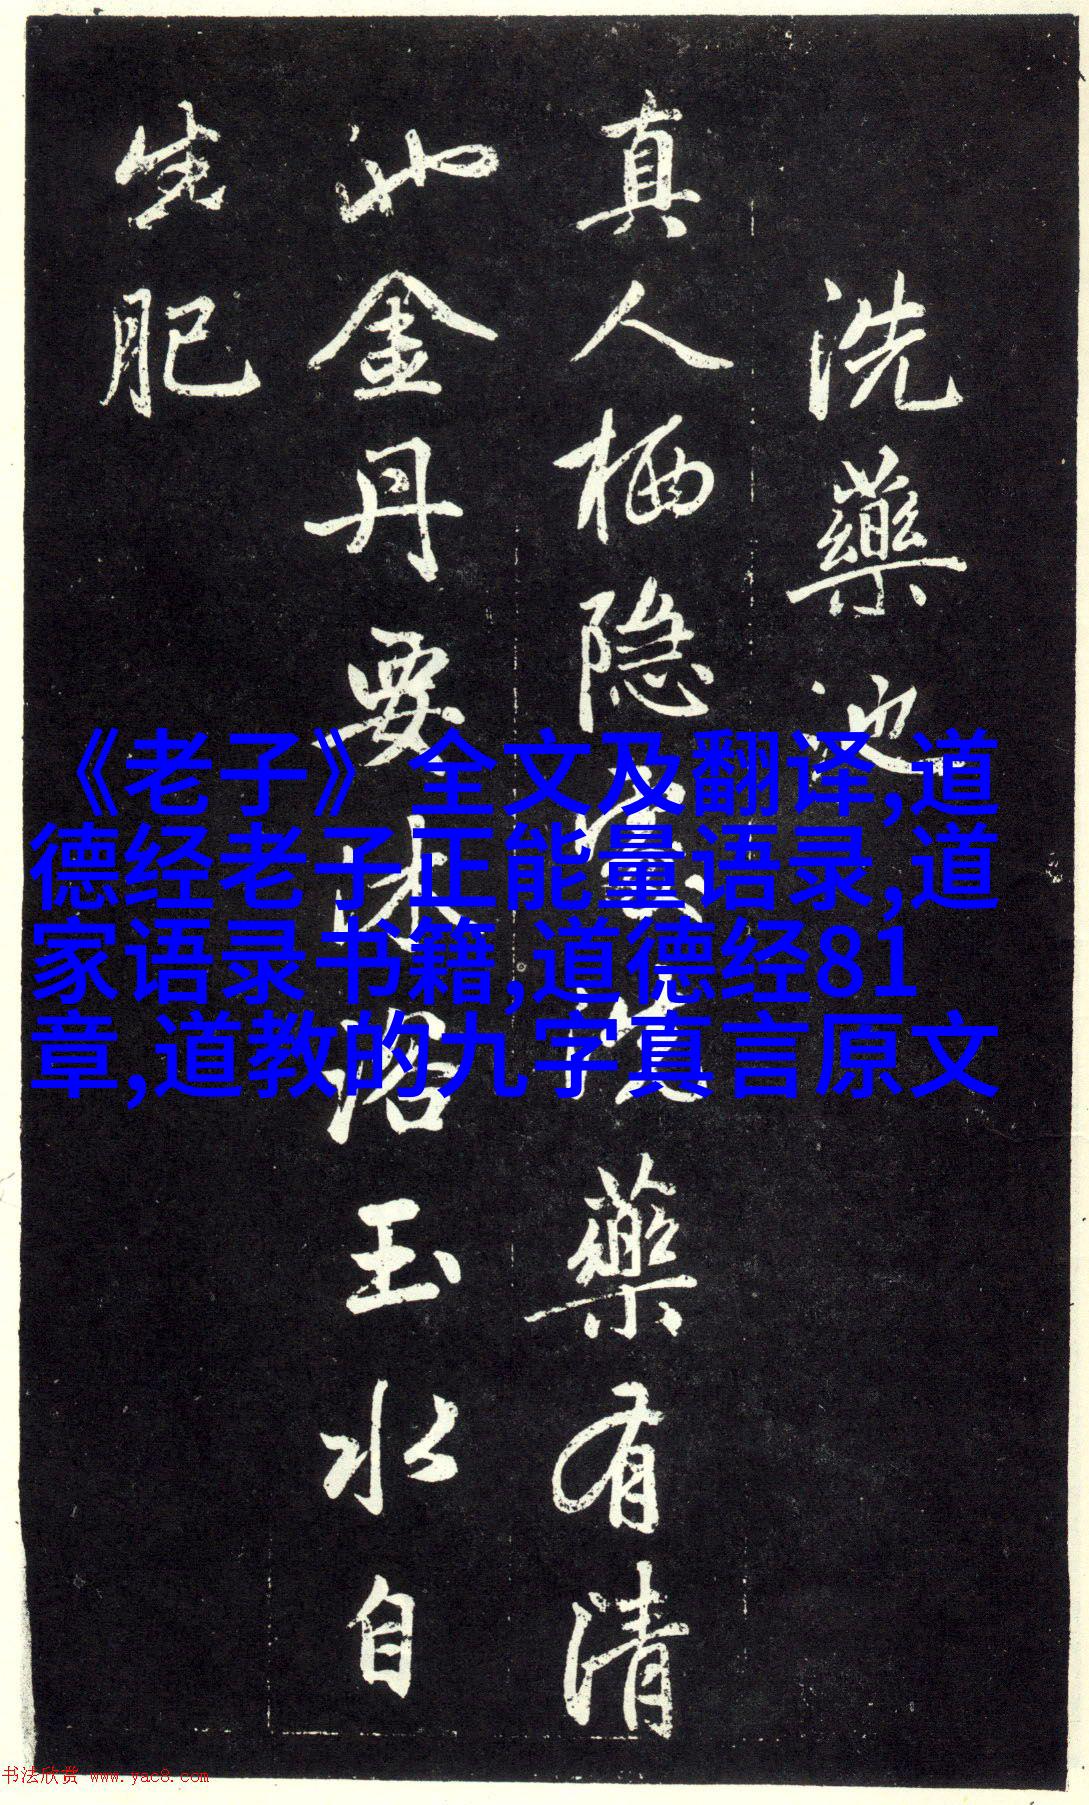 洗藥池
真人栖隐處洗藥有清
池金丹要沐浴玉水自
生肥
《老子》全文及翻译,道
德经老子正能量语录,道
家语录书籍,道德经81
章,道教的九字真言原文
书法欣赏 www.yac8.com